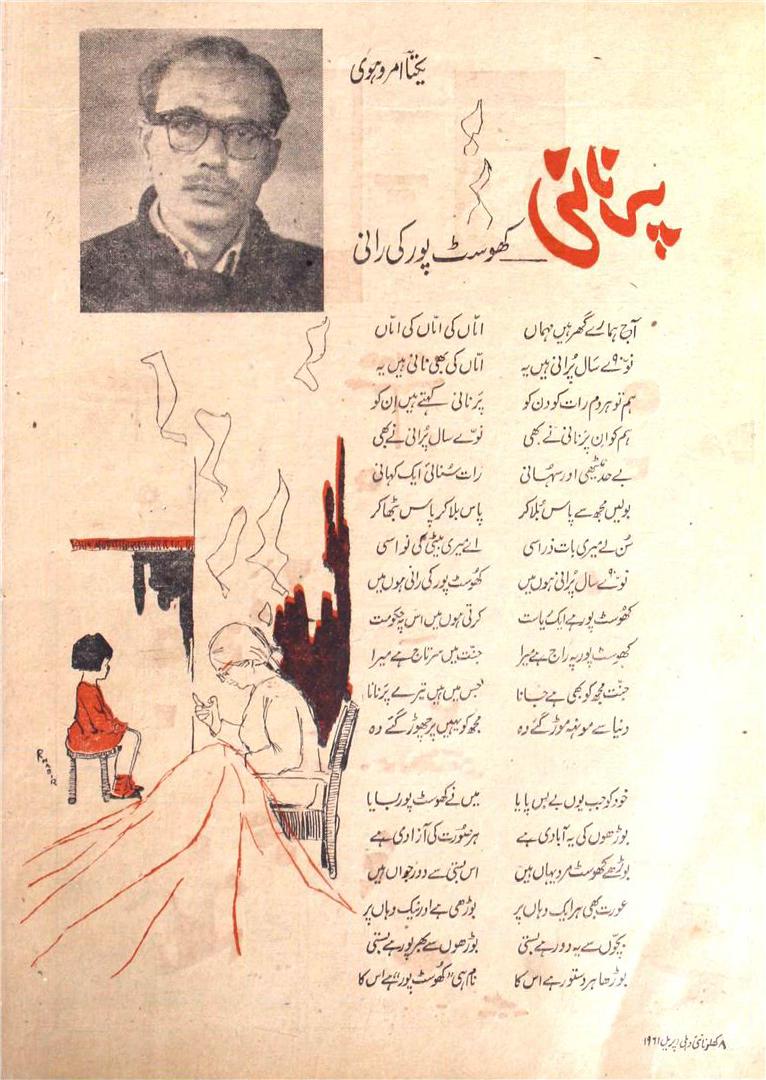 یکتا امروہوی
پر نانی
کھوسٹ پور کی رانی
آج ہمارے گھر ہیں مہماں اماّں کی اماّں کی اماّں
نوّے ۹۰ سال پُرانی ہیں یہ اماّں کی بھی نانی ہیں یہ
ہم تو ہر دم رات کو دن کو پَر نانی کہتے ہیں اِن کو
ہم کو اِن پَر نانی نے بھی نوّے سال پُرانی نے بھی
بے حد میٹھی اور سہانی رات سُنائی ایک کہانی
بولیں مجھ سے پاس بُلا کر پاس بلا کر پاس بٹھا کر
سُن لے میری بات ذرا سی اے میری بیٹی کی نواسی
نوّے ۹۰ سال پُرانی ہوں میں کھوسٹ پور کی رانی ہوں میں
کھُوسٹ پور ہے ایک ریاست کرتی ہوں میں اس پہ حکومت
کھوسٹ پور پہ راج ہے میرا جنّت میں سرتاج ہے میرا
جنّت مجھ کو بھی ہے جانا جس میں ہیں تیرے پَر نانا
دنیا سے مونہہ موڑ گئے وہ مجھ کو یہیں پر چھوڑ گئے وہ
خود کو جب یوں بے بس پایا میں نے کھُوسٹ پور بسایا
بوڑھوں کی یہ آبادی ہے ہر صُورت کی آزادی ہے
بوڑھے کھوسٹ مرد یہاں ہیں اس بستی سے دور جواں ہیں
عورت بھی ہر ایک وہاں پر بوڑھی ہے اور نیک وہاں پر
بچّوں سے یہ دور ہے بستی بوڑھوں سے بھرپور ہے بستی
بوڑھا ہر دستور ہے اس کا نام ہی "کھُوسٹ پور" ہے اس کا
۸ کھلونا نئی دہلی اپریل ۱۹۶۱